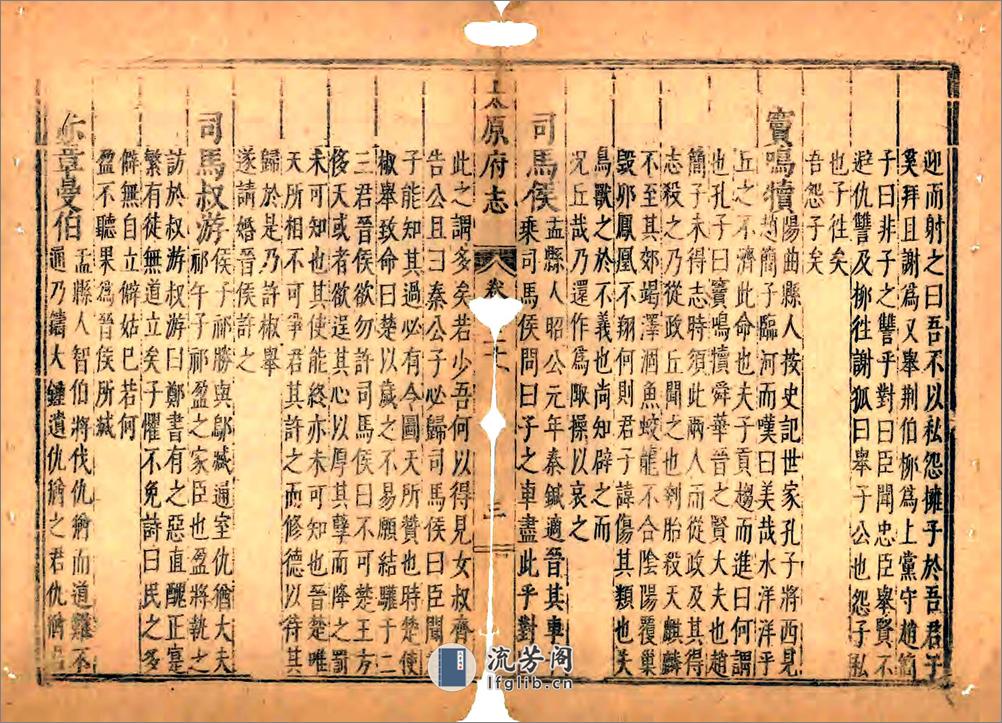 迎而射之曰吾不以私怨擁子於吾君子
奚拜且謝爲又舉荆伯柳爲上黨守趙簡
子曰非子之讐乎對曰臣聞忠臣舉賢不
避仇讐及柳徃謝狐曰舉子公也怨子私
也子徃矣
吾怨子矣
竇鳴犢陽曲縣人按史記世家孔子將西見
趙簡子臨河而嘆曰美哉水洋洋乎
丘之不濟此命也夫子貢趨而進曰何謂
也孔子曰竇鳴犢舜華晉之賢大夫也趙
簡子未得志時須此兩人而後從政及其
志殺之乃從政丘聞之也刳胎殺夭麒麟
不至其郊竭澤涸魚蛟龍不合陰陽覆巢
毁卵鳳凰不翔何則君子諱傷其類也夫
鳥獸之於不義也尚知辟之而
况丘哉乃還作爲陬操以哀之
司馬侯孟縣人昭公元年秦鍼適晉其車千
乘司馬侯問曰子之車盡此乎對
太原府志
卷
三
此之謂多矣若少吾何以得見女叔齊
告公且曰秦公子必歸司馬侯曰臣聞
子能知其過必有令圖天所贊也時楚使
椒舉致命曰楚以歲之不易願結驩于二
三君晉侯欲勿許司馬侯曰不可楚王方
侈天或者欲逞其心以厚其孽而降之罰
未可知也其使能終亦未可知也晉楚唯
天所相不可爭君其許之而修德以待其
歸於是乃許椒舉
遂請婚晉侯許之
司馬叔游晉侯時祁勝與鄔臧通室仇猶大夫
祁午子祁盈之家臣也盈將執之
訪於叔游叔游曰鄭書有之惡直醜正寔
繁有徒無道立矣子懼不免詩曰民之多
僻無自立僻姑已若何
盈不聽果爲晉侯所滅
赤章曼伯孟縣人智伯將伐仇猶而道難不
通乃鑄大鍾遺仇猶之君仇猶君
流芳阁
lfglib.cn